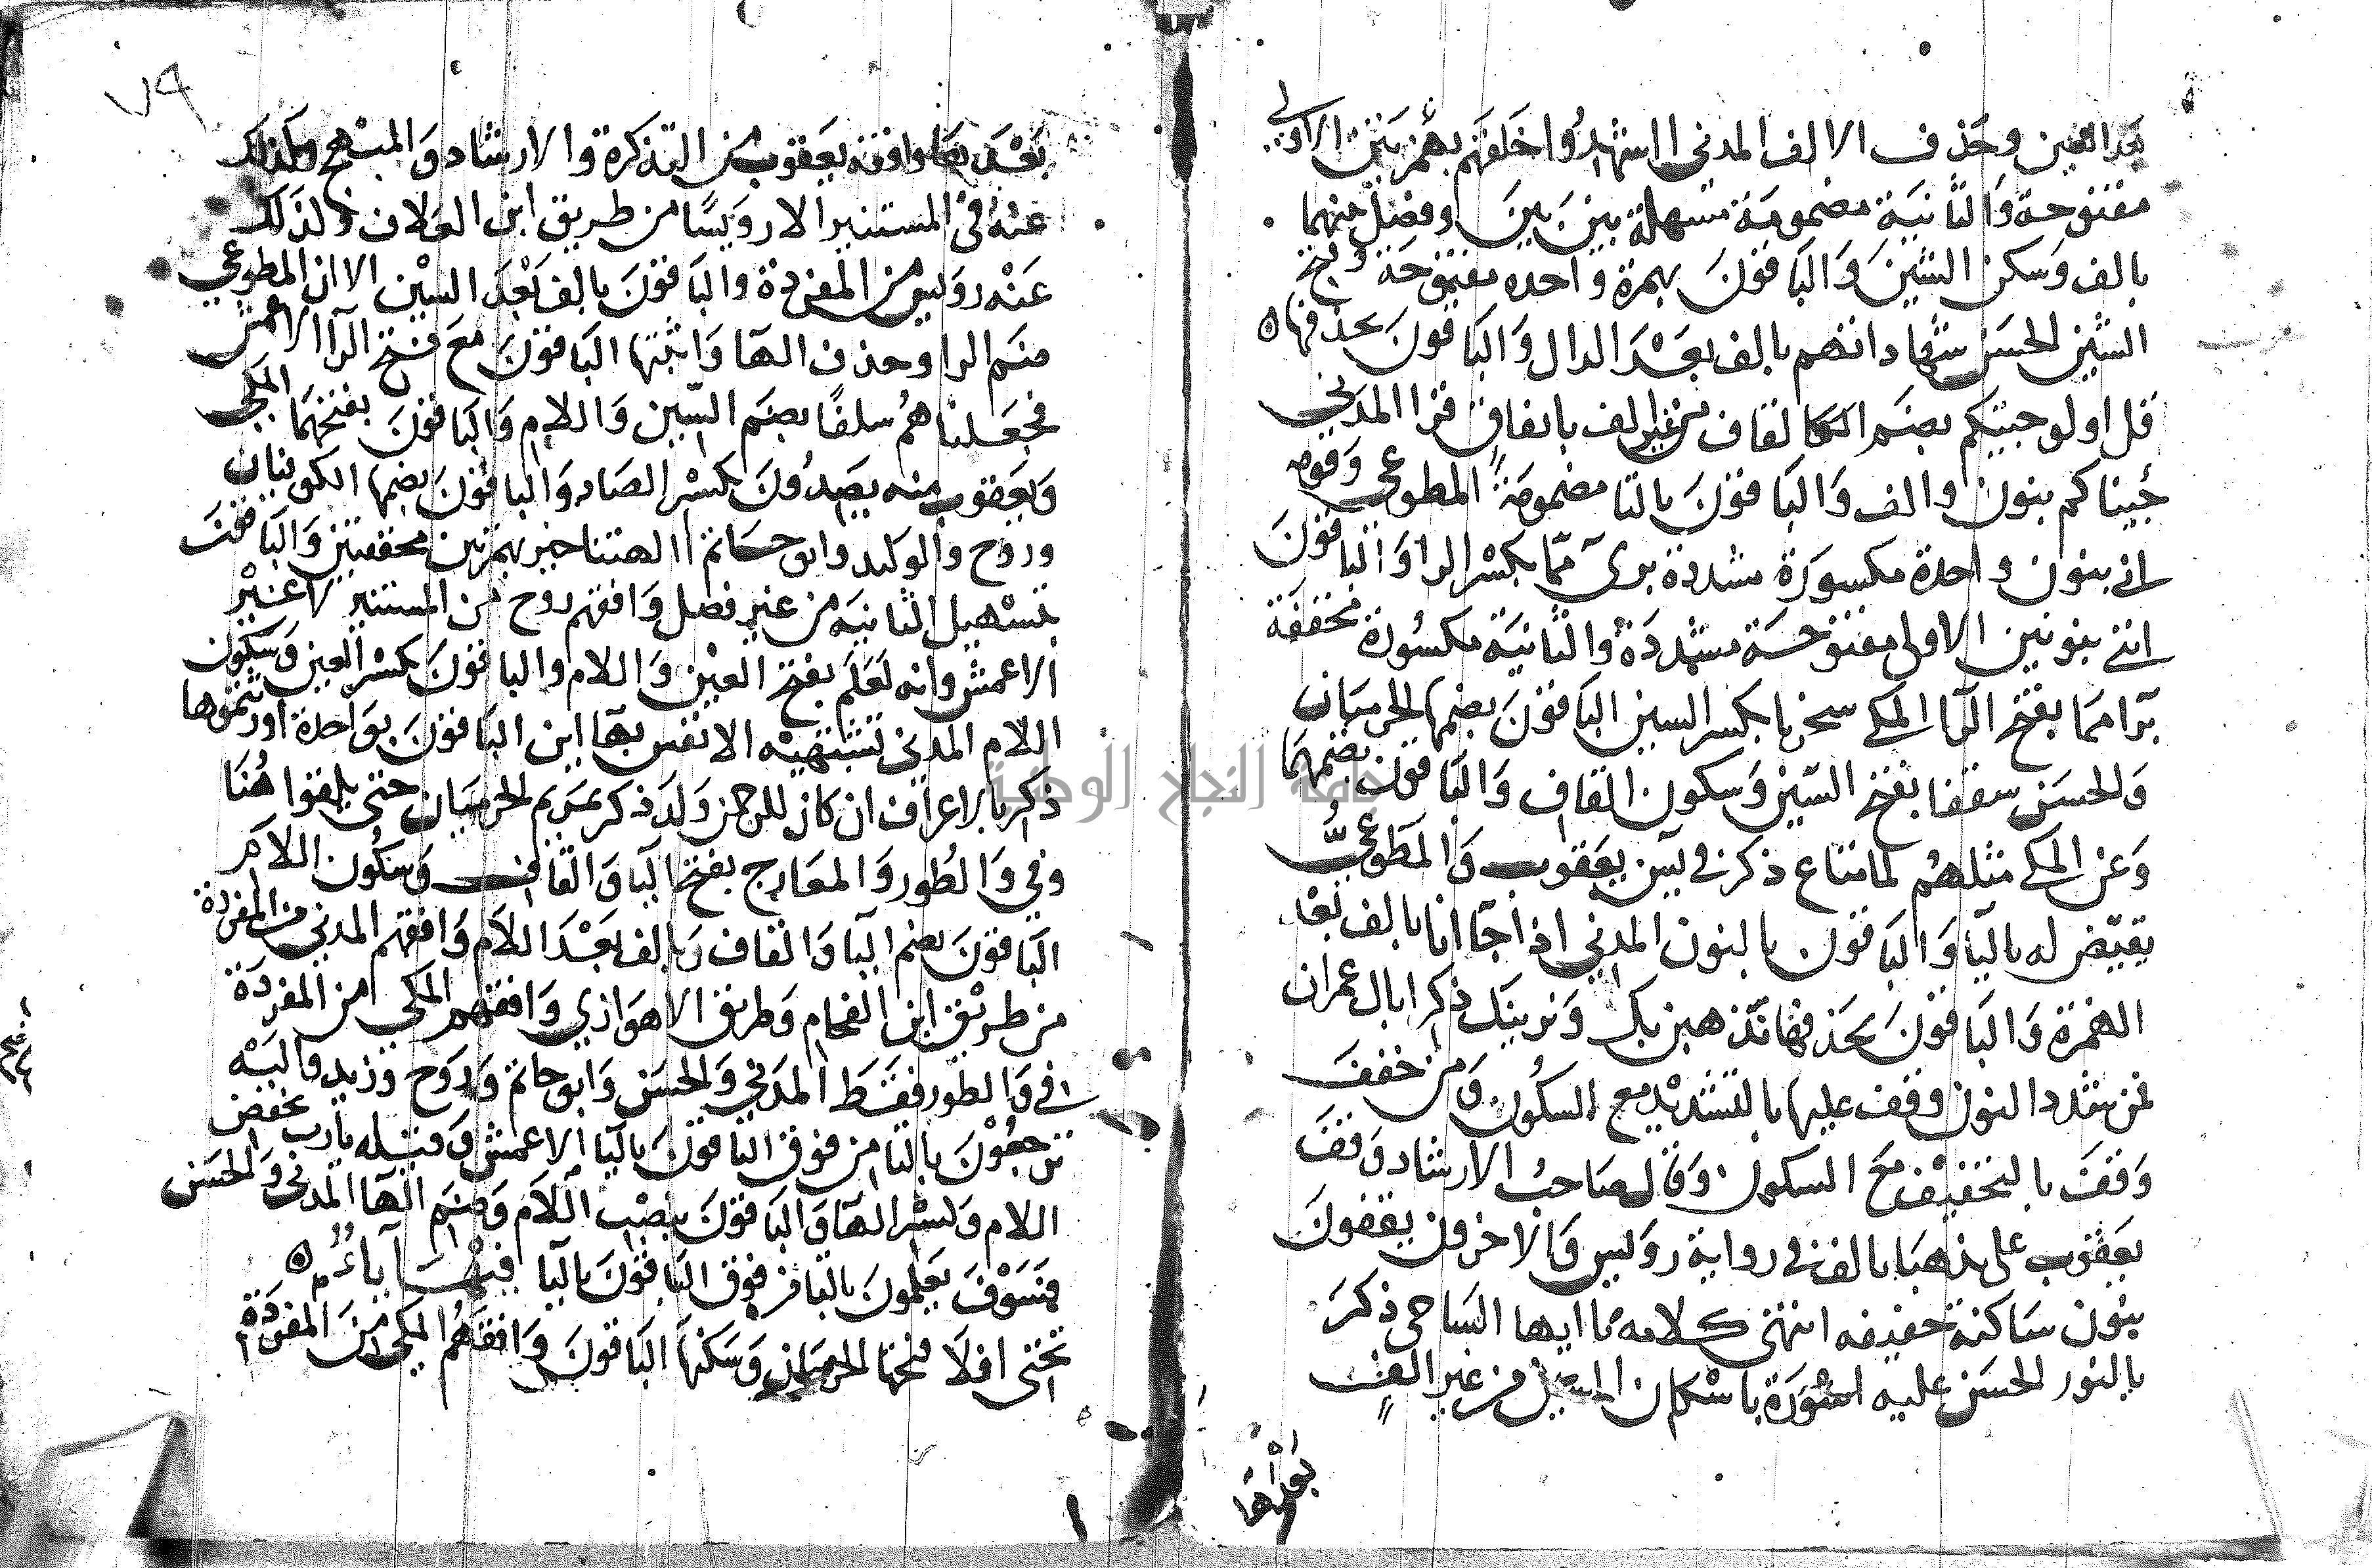 بعد العين وحذف الالف المدني ااشهدوا خلقهم بهمزتين الاولى
مفتوحة والثانية مضمومة مسهلة بين بين وفصل بينهما
بالف وسكن الشين والباقون بهمزة واحده مفتوحة وفتح
الشين الحسن شهاداتهم بالف بعد الدال والباقون بحذفها ه
قل اولو جيتكم بضم القاف من غير الف باتفاق قرا المدني
جيناكم بنون والف والباقون بالتا مضمومة المطوعي وقومه
اني بنون واحدة مكسورة مشددة بريء مما بكسر الرا والباقون
انني بنونين الاولى مفتوحة مشددة والثانية مكسورة مخففة
برا مما بفتح الرا المكي سخريا بكسر السين الباقون بضمها الحرميان
والحسن سقفا بفتح السين وسكون القاف والباقون بضمهما
وعن المكي مثلهم لما متاع ذكر في يسن يعقوب والمطوعي
يقيض له باليا والباقون بالنون المدني اذا جاانا بالف بعد
الهمزة والباقون بحذفها نذهبن بك ونرينك ذكرا بال عمران
فمن شدد النون وقف عليها بالتشديد مع السكون ومن خفف
وقف بالتخفيف مع السكون وقال صاحب الارشاد وقف
يعقوب على نذهبا بالف في رواية رويس والاخرون يقفون
بنون ساكنة خفيفه انتهى كلامه يا ايها الساحر ذكر
بالنور الحسن عليه اسورة باسكان السين من غير الف
بعدها
٧٩
بعدها وافقه يعقوب من التذكرة والارشاد والمبهج وكذلك
عنه في المستنير الا رويسا من طريق ابن العلاف وكذلك
عنه رويس من المفردة والباقون بالف بعد السين الا ان المطوعي
ضم الرا وحذف الها واثبتها الباقون مع فتح الرا الاعمش
فجعلناهم سلفا بضم السين واللام والباقون بفتحهما المكي
ويعقوب منه يصدون بكسر الصاد والباقون بضمها الكوفيان
وروح والوليد وابو حاتم االهتنا خير بهمزتين محققتين والباقون
بتسهيل الثانية من غير فصل وافقهم روح من المستنير لا غير
الاعمش وانه لعلم بفتح العين واللام والباقون بكسر العين وسكون
اللام المدني تشتهيه الانفس بها اين الباقون بواحدة اورثتموها
ذكر بالاعراف ان كان للرحمن ولد ذكر بمريم الحرميان حتى يلقوا هنا
وفي والطور والمعارج بفتح اليا والقاف وسكون اللام
الباقون بضم اليا والقاف وبالف بعد اللام وافقهم المدني من المفردة
من طريق ابن الفحام وطريق الاهوازي وافقهم المكي من المفردة
في والطور فقط المدني والحسن وابو حاتم وروح وزيد واليه
ترجعون بالتا من فوق الباقون باليا الاعمش وقيله يارب بخفض
اللام وكسر الها والباقون بنصب اللام وضم الها المدني والحسن
فسوف يعلمون بالتا من فوق الباقون باليا فيها يااتٌ ه
تحتي افلا فتحها الحرميان وسكنها الباقون وافقهم المكي من المفردة
جامعة النجاح الوطنية